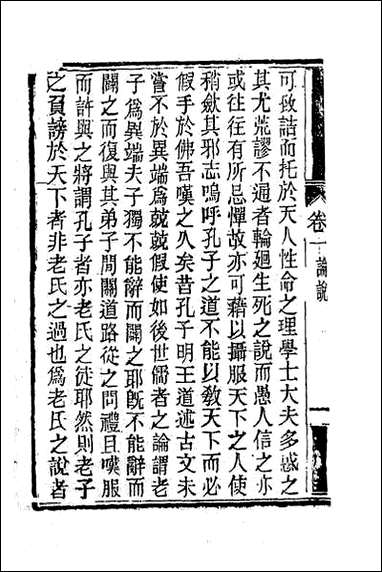 卷一 論說
可致詰而托於天人性命之理學士大夫多惑之
其尤荒謬不逼者輪廻生死之說而愚人信之亦
或往往有所忌憚故亦可藉以攝服天下之人使
稍斂其邪志嗚呼孔子之道不能以敎天下而必
假手於佛吾嘆之久矣昔孔子明王道述古文未
嘗不於異端爲兢兢假使如後世儒者之論謂老
子爲異端夫子獨不能辭而闢之耶旣不能辭而
闢之而復與其弟子間關道路從之問禮且嘆服
而許與之將謂孔子者亦老氏之徒耶然則老子
之負謗於天下者非老氏之過也爲老氏之說者